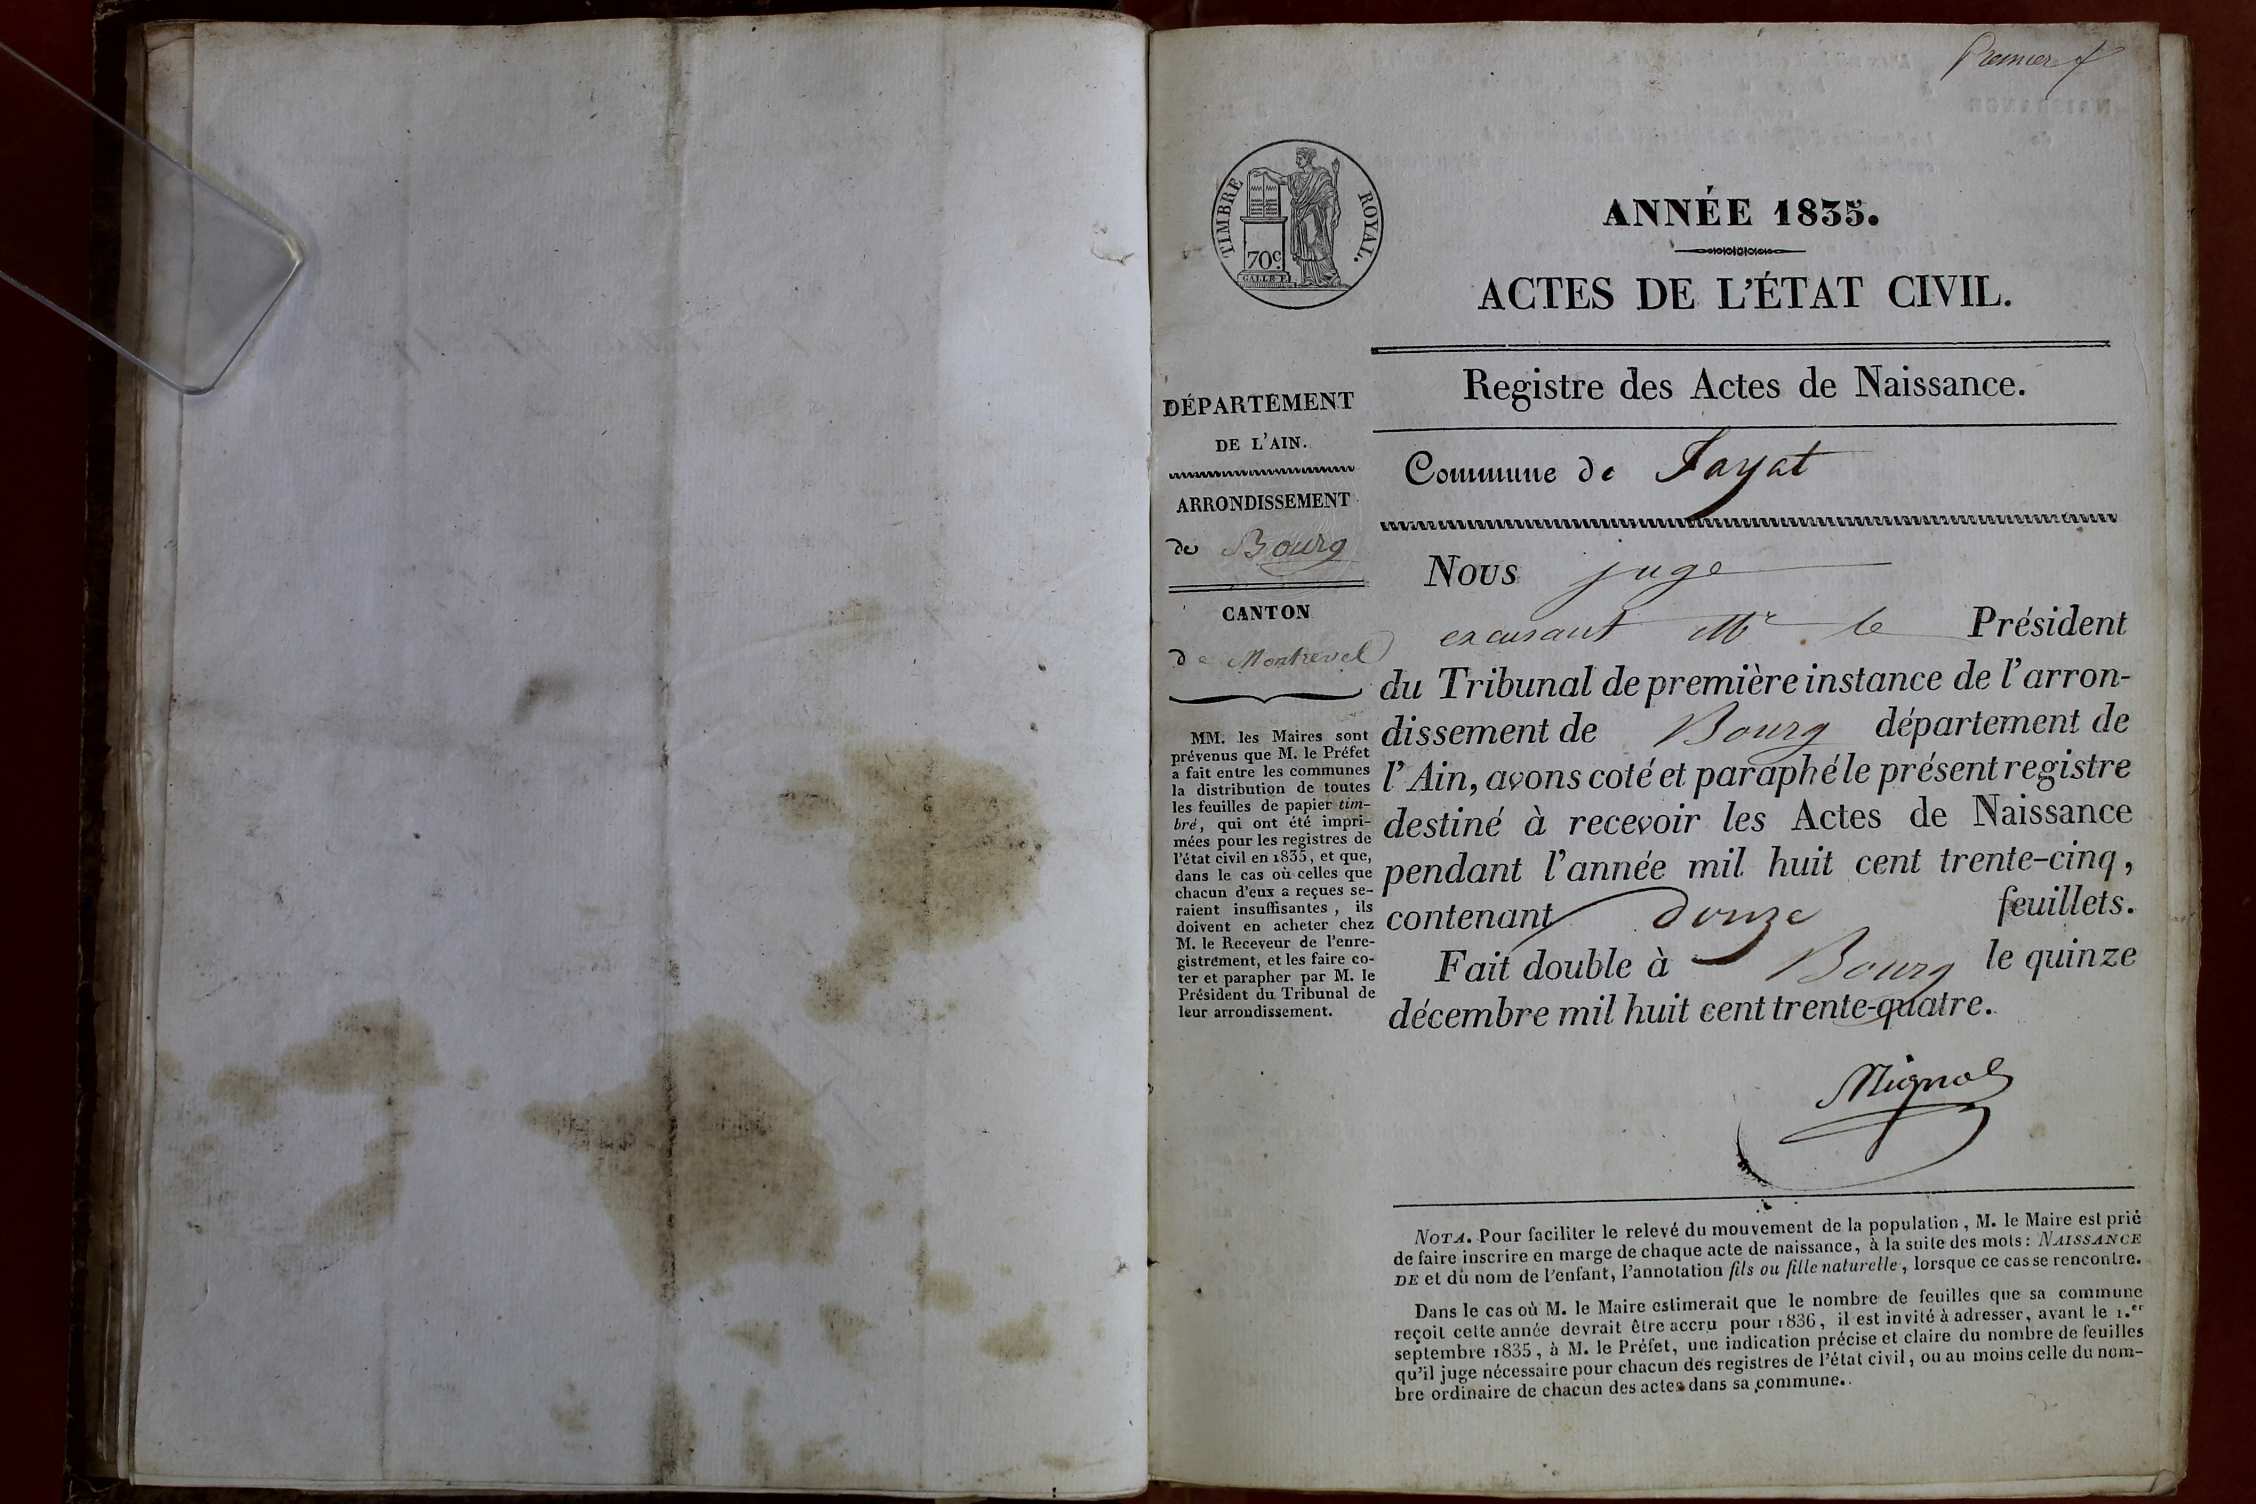 Premier
TIMBRE ROYAL.
70c.
GALLE F.
ANNÉE 1835.
ACTES DE L'ÉTAT CIVIL.
Registre des Actes de Naissance.
Commune de Jayat
DÉPARTEMENT
DE L'AIN.
ARRONDISSEMENT
de Bourg
CANTON
de Montrevel
MM. les Maires sont
prévenus que M. le Préfet
a fait entre les communes
la distribution de toutes
les feuilles de papier tim-
bré, qui ont été impri-
mées pour les registres de
l'état civil en 1835, et que,
dans le cas où celles que
chacun d'eux a reçues se-
raient insuffisantes, ils
doivent en acheter chez
M. le Receveur de l'enre-
gistrement, et les faire co-
ter et parapher par M. le
Président du Tribunal de
leur arrondissement.
Nous juge
excusant Mr le Président
du Tribunal de première instance de l'arron-
dissement de Bourg département de
l'Ain, avons coté et paraphé le présent registre
destiné à recevoir les Actes de Naissance
pendant l'année mil huit cent trente-cinq,
contenant douze feuillets.
Fait double à Bourg le quinze
décembre mil huit cent trente-quatre.
NOTA. Pour faciliter le relevé du mouvement de la population, M. le Maire est prié
de faire inscrire en marge de chaque acte de naissance, à la suite des mots: NAISSANCE
DE et du nom de l'enfant, l'annotation fils ou fille naturelle, lorsque ce cas se rencontre.
Dans le cas où M. le Maire estimerait que le nombre de feuilles que sa commune
reçoit cette année devrait être accru pour 1836, il est invité à adresser, avant le 1.er
septembre 1835, à M. le Préfet, une indication précise et claire du nombre de feuilles
qu'il juge nécessaire pour chacun des registres de l'état civil, ou au moins celle du nom-
bre ordinaire de chacun des actes dans sa commune.